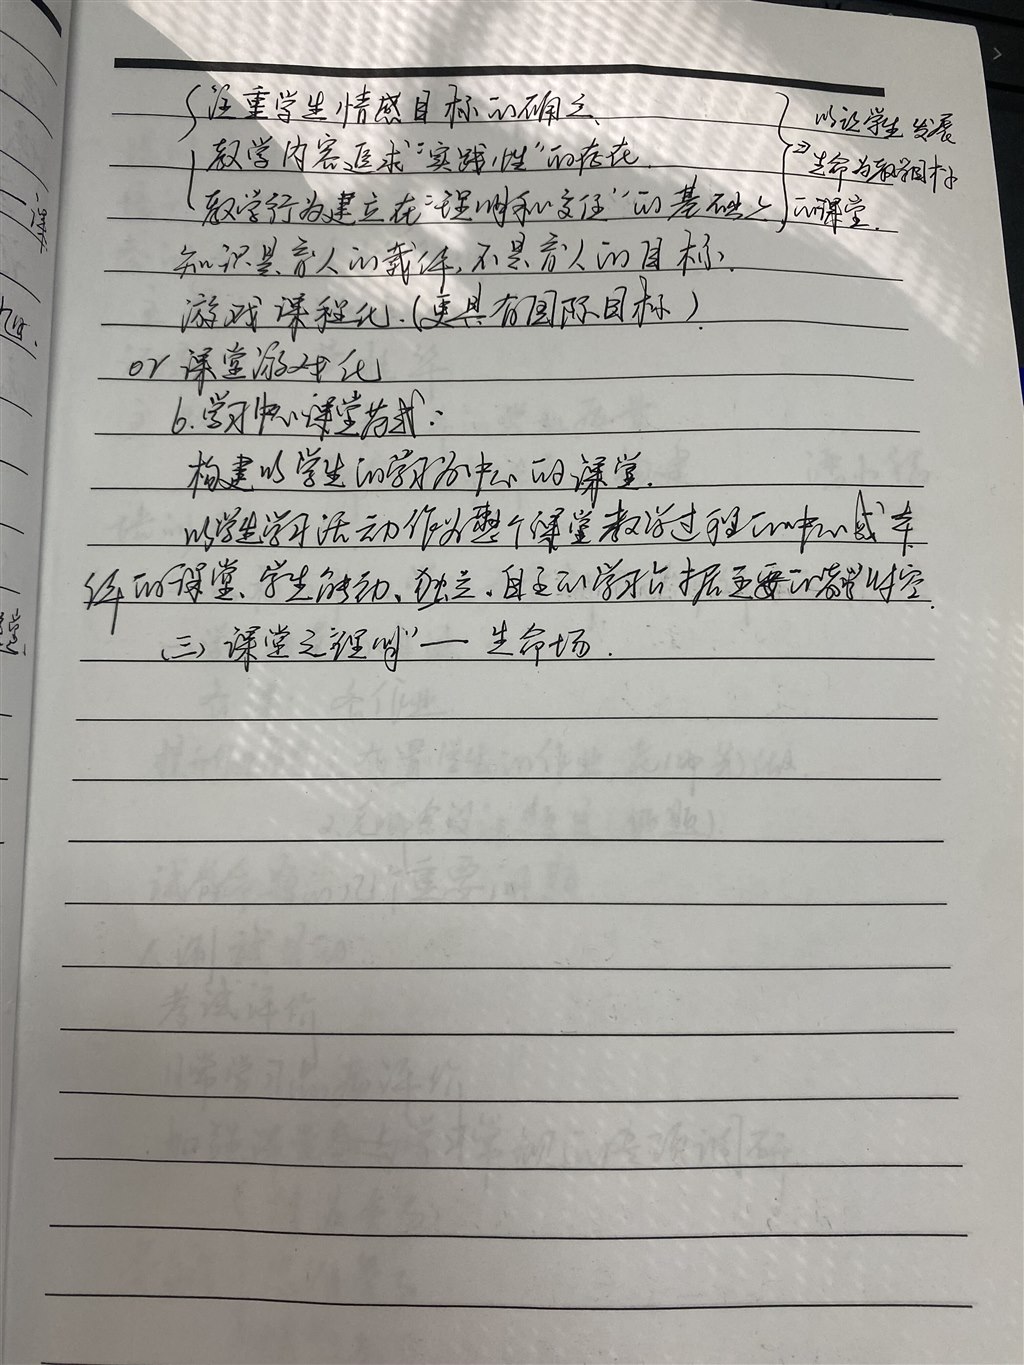 注重学生情感目标的确立、
教学内容追求“实践性”的存在.
教学行为建立在“理解和交往”的基础上
以让学生发展
生命为教学目标
的课堂.
知识是育人的载体,不是育人的目标.
游戏课程化.(更具有国际目标)
or 课堂游戏化
6.学习中心课堂范式:
构建以学生的学习为中心的课堂.
以学生学习活动作为整个课堂教学过程的中心或本
体的课堂、学生能动、独立、自主的学习占据主要的教学时空.
(三)课堂之理解”一 生命场.